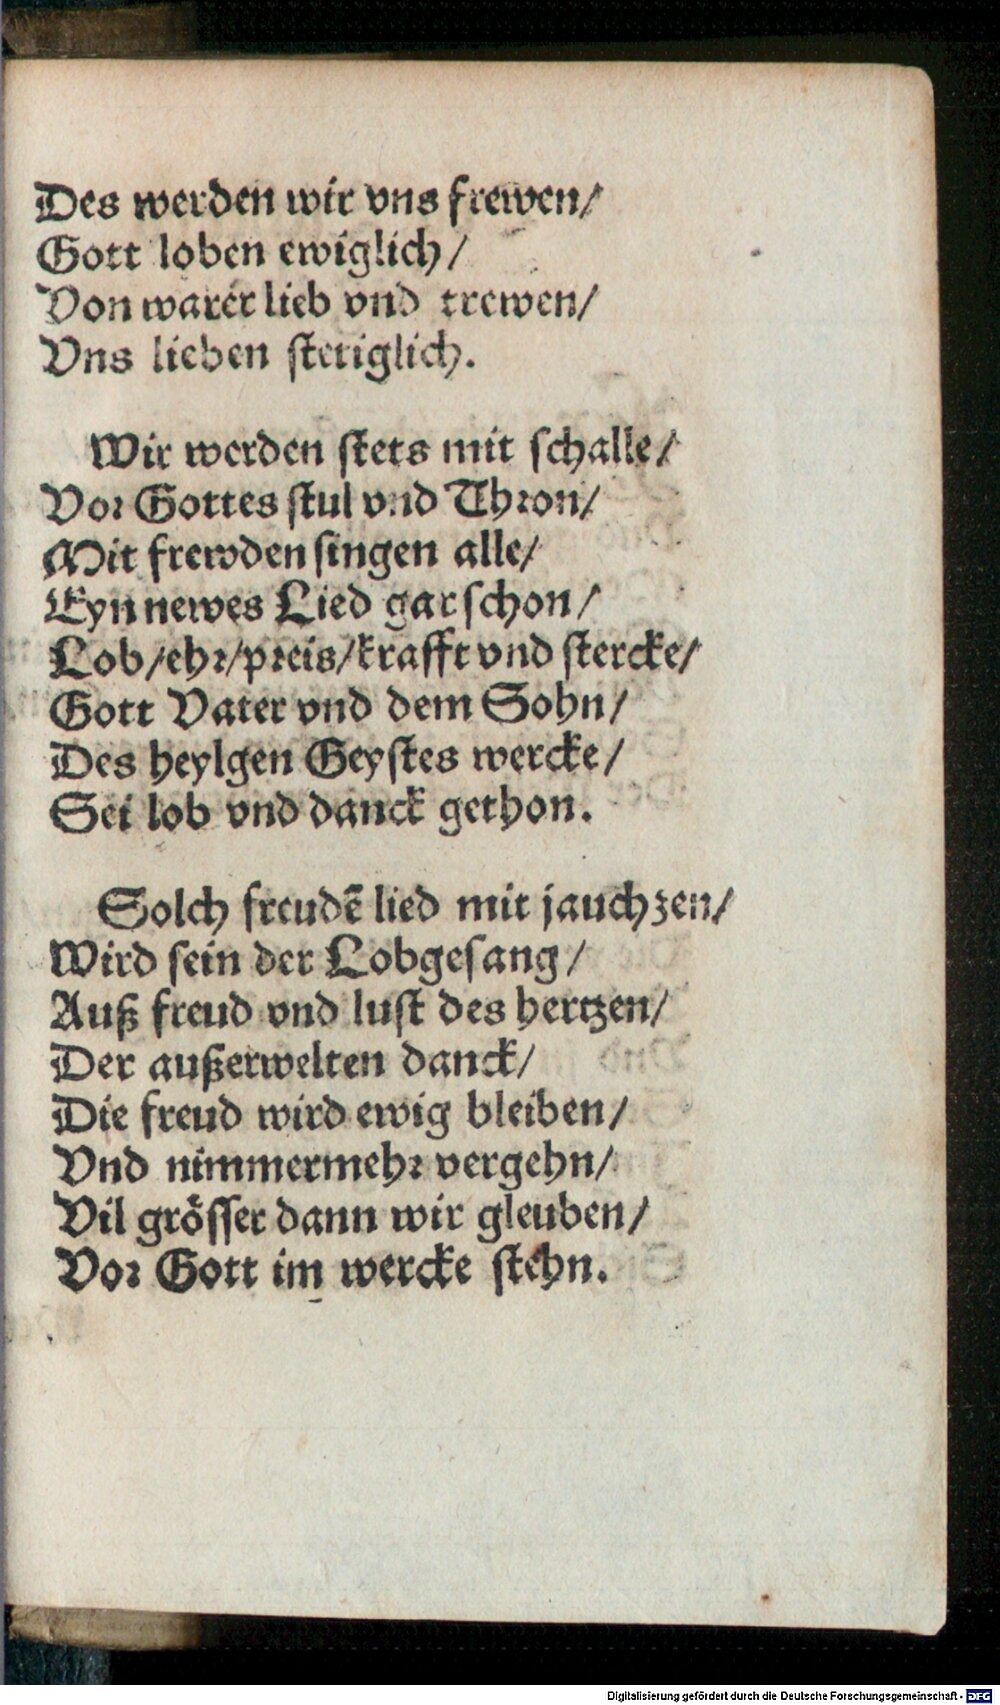 Des werden wir vns frewen/
Gott loben ewiglich/
Von warer lieb vnd trewen/
Vns lieben stetiglich.
Wir werden stets mit schalle/
Vor Gottes stul vnd Thron/
Mit frewden singen alle/
Eyn newes Lied gar schon/
Lob/ehr/preis/krafft vnd stercke/
Gott Vater vnd dem Sohn/
Des heylgen Geystes wercke/
Sei lob vnd danck gethon.
Solch freudē lied mit jauchzen/
Wird sein der Lobgesang/
Auß freud vnd lust des hertzen/
Der außerwelten danck/
Die freud wird ewig bleiben/
Vnd nimmermehr vergehn/
Vil grösser dann wir gleuben/
Vor Gott im wercke stehn.
Digitalisierung gefördert durch die Deutsche Forschungsgemeinschaft - DFG